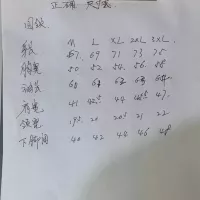 正确 尺寸表
圆领
M L XL 2XL 3XL
衣长 67 69 71 73 75
胸宽 50 52 54 56 58
肩宽 41 42.5 44 45.5 47
领宽 19.5 20 20.5 21 22
下脚围 40 42 44 46 48